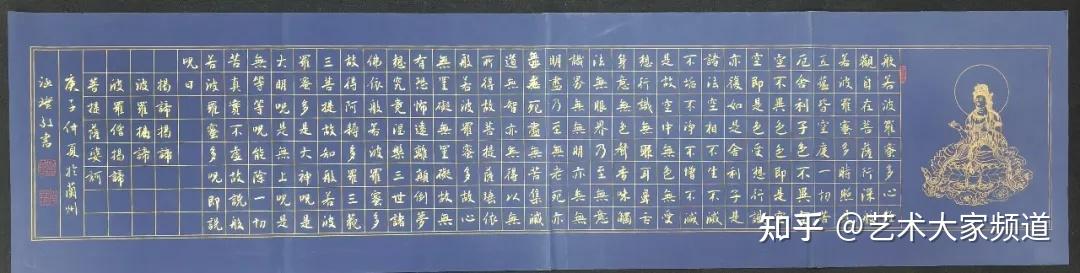 般若波羅蜜多心經
觀自在菩薩行深般
若波羅蜜多時照見
五蘊皆空度一切苦
厄舍利子色不異空
空不異色色即是空
空即是色受想行識
亦復如是舍利子是
諸法空相不生不滅
不垢不淨不增不減
是故空中無色無受
想行識無眼耳鼻舌
身意無色聲香味觸
法無眼界乃至無意
識界無無明亦無無
明盡乃至無老死亦
無老死盡無苦集滅
道無智亦無得以無
所得故菩提薩埵依
般若波羅蜜多故心
無罣礙無罣礙故無
有恐怖遠離顛倒夢
想究竟涅槃三世諸
佛依般若波羅蜜多
故得阿耨多羅三藐
三菩提故知般若波
羅蜜多是大神呪是
大明呪是無上呪是
無等等呪能除一切
苦真實不虛故說般
若波羅蜜多呪即說
呪曰
揭諦揭諦
波羅揭諦
波羅僧揭諦
菩提薩婆訶
庚子仲夏於蘭州
敬書
知乎 @艺术大家频道